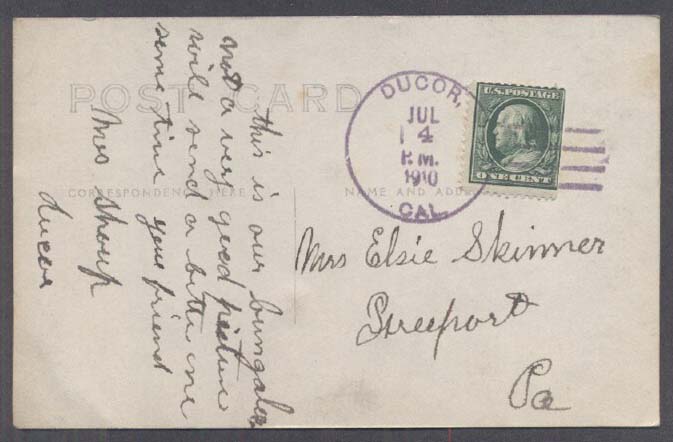 POST CARD
CORRESPONDENCE HERE
NAME AND ADDRESS
this is our bungalow
not a very good picture
will send a better one
some time your friend
Mrs Shoup
Ducor
DUCOR,
JUL
4
P.M.
1910
CAL.
U.S. POSTAGE
ONE CENT
Mrs Elsie Skinner
Freeport
Pa